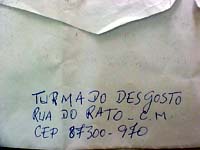 TURMA DO DESGOSTO
RUA DO RATO - C.M.
CEP 87300-970